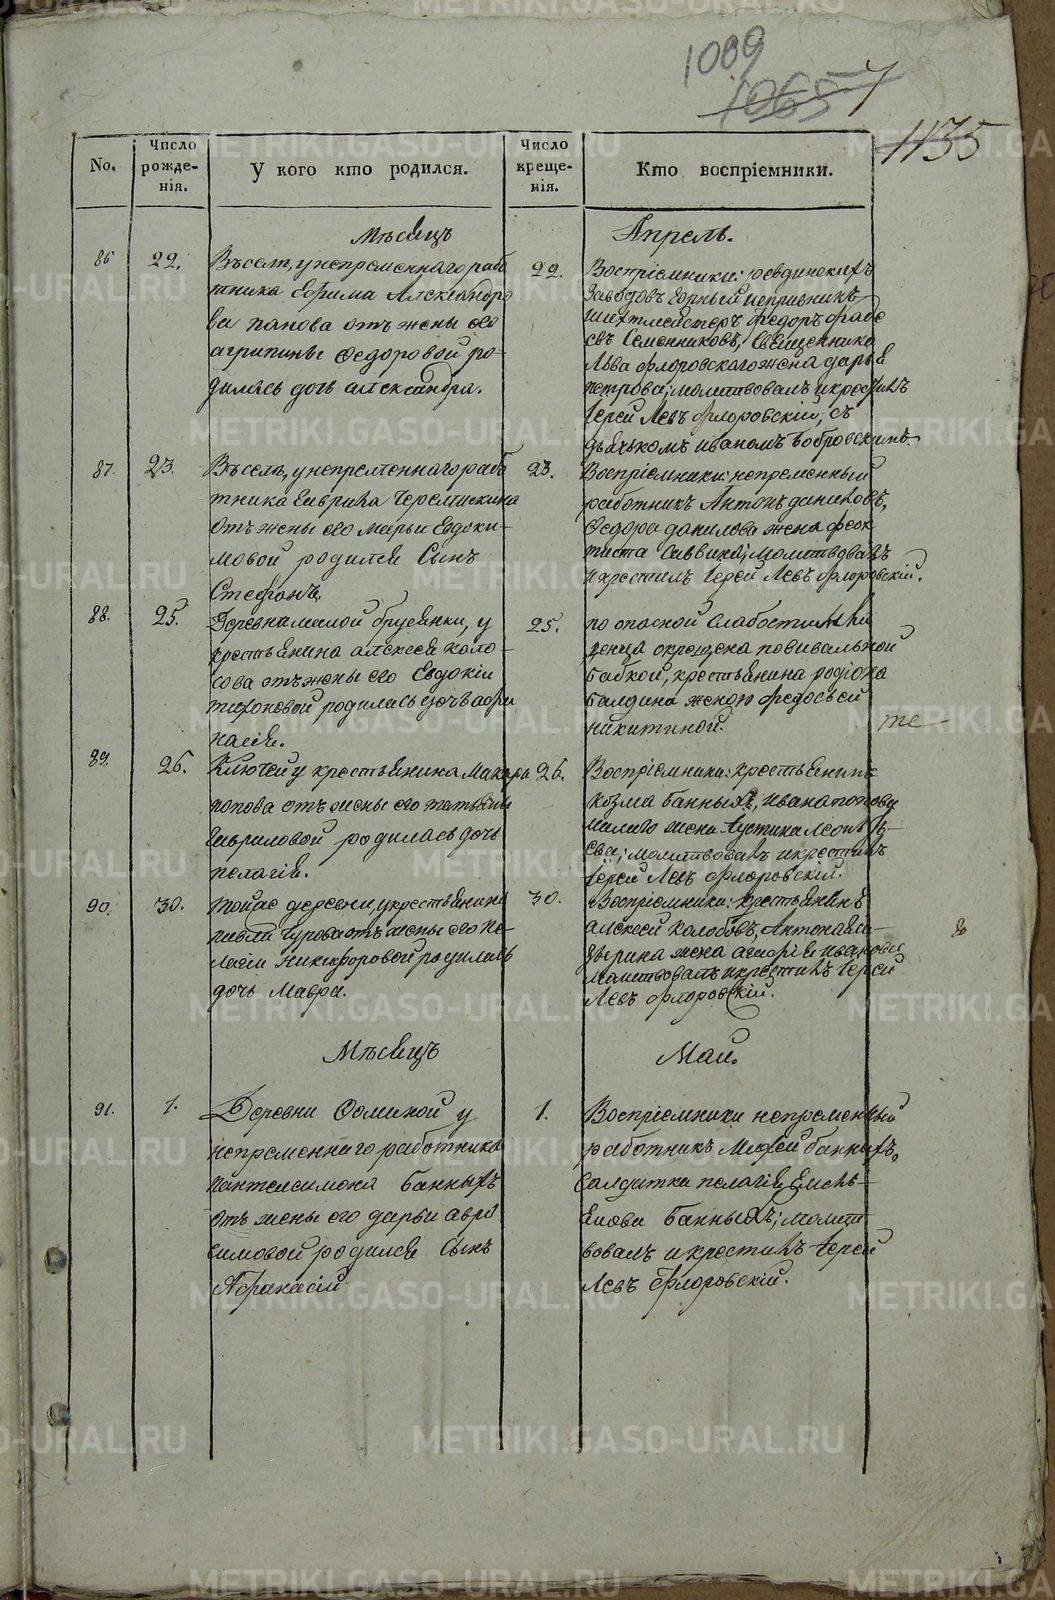 1009
1065
1135
No.
Число рожде-нія.
У кого кто родился.
Число креще-нія.
Кто воспріемники.
Мѣсяцъ
Апрель.
86
22.
Въселѣ, у непременнаго рабо
тника Ефима Александро
ва папова отъ жены его
агрипины Федоровой ро-
дилась дочь александра.
22.
Воспріемники:
Заводовъ Горный исправникъ
шихтмейстеръ Федоръ
Семенниковъ, Священника
Льва Флоровскаго жена дарья
петрова; молитвовалъ икрестилъ
Іерей Левъ Флоровскій, съ
дьячькомъ иваномъ бобровскимъ.
87.
23.
Въселѣ, у непременнаго рабо
тника Гаврила Черемискина
отъ жены его марьи Евдоки-
мовой родился Сынъ
Стефанъ.
23.
Воспріемники: непременный
работникъ Антонъ даниловъ,
Федора данилова жена феок
тиста Саввина; молитвовалъ
икрестилъ Іерей Левъ Флоровскій.
88.
25.
Деревни малой брусянки, у
крестьянина алексея коло-
сова отъ жены его Евдокіи
тихоновой родилась дочь афо
насія.
25.
по опасной Слабости мла
денца окрещена повивальной
бабкой, крестьянина родіона
балдина женой федосьей
никитиной.
те
89.
26.
Ключей у крестьянина Макара
попова отъ жены его татьяны
Гавриловой родилась дочь
пелагія.
26.
Воспріемники: крестьянинъ
козма банныхъ, ивана попова
жена
ева; молитвовалъ икрестилъ
Іерей Левъ Флоровскій.
90.
30.
тойже деревни, укрестьянина
отъ жены его пе-
лагіи никифоровой родилась
дочь Мавра.
30.
Воспріемники: крестьянинъ
алексей Колобовъ, Антона
жена ивановна
молитвовалъ икрестилъ Іерей
Левъ Флоровскій.
Мѣсяцъ
Маи.
91.
1.
Деревни Фоминой у
непременнаго работника
пантелеимона банныхъ
отъ жены его дарьи авро
симовой родился Сынъ
Афанасій
1.
Воспріемники непременный
работникъ банныхъ,
Салдатка пелагія Емель-
янова банныхъ; молит
вовалъ икрестилъ Іерей
Левъ Флоровскій.
METRIKI.GASO-URAL.RU